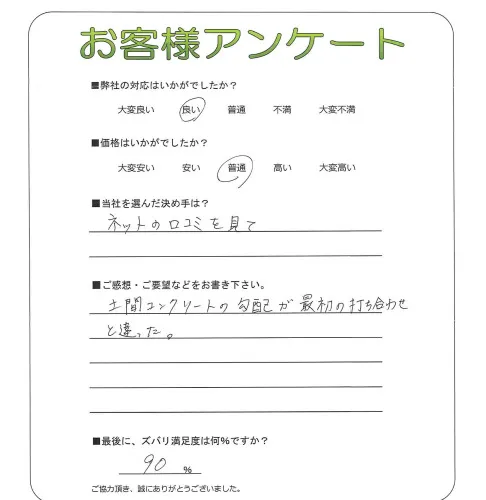 お客様アンケート
■弊社の対応はいかがでしたか？
大変良い 良い 普通 不満 大変不満
■価格はいかがでしたか？
大変安い 安い 普通 高い 大変高い
■当社を選んだ決め手は？
ネットの口コミを見て
■ご感想・ご要望などをお書き下さい。
土間コンクリートの勾配が最初の打ち合わせ
と違った。
■最後に、ズバリ満足度は何%ですか？
90 %
ご協力頂き、誠にありがとうございました。